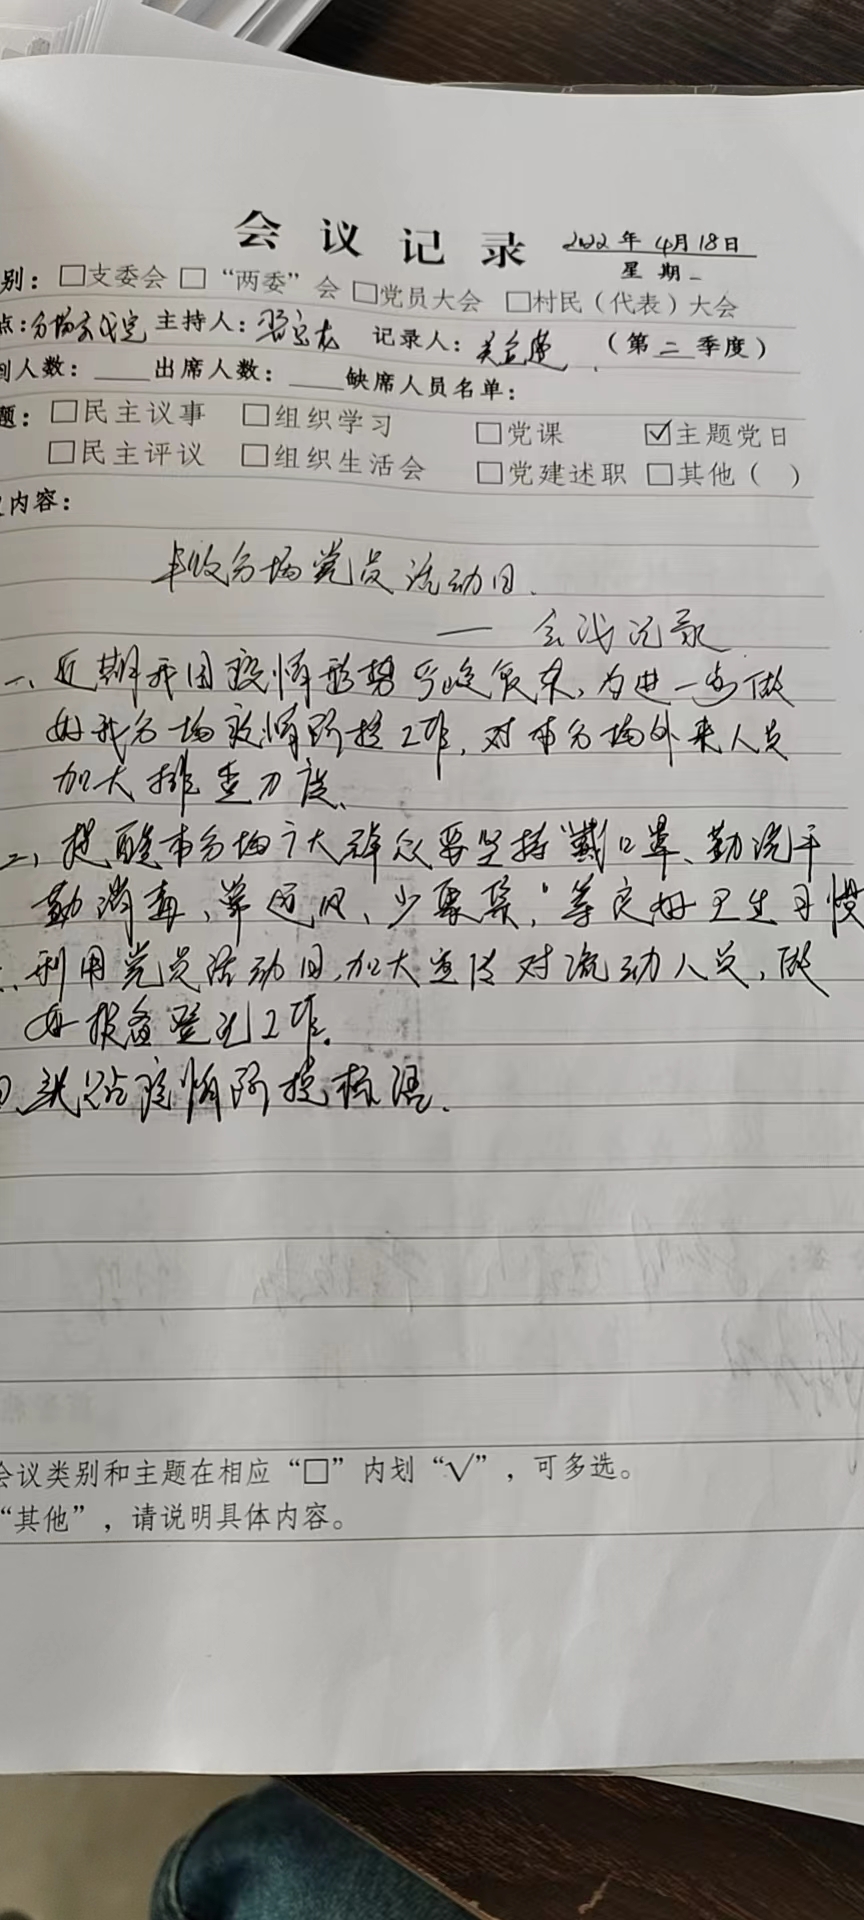 会议记录 2022年4月18日
星期一
别：□支委会 □“两委”会 □党员大会 □村民（代表）大会
点：分场会议室 主持人： 记录人： （第二季度）
到人数：____出席人数：____缺席人员名单：
题：□民主议事 □组织学习 □党课 ☑主题党日
□民主评议 □组织生活会 □党建述职 □其他（ ）
内容：
丰收分场党员活动日.
— 会议记录
一、近期我国疫情形势严峻复杂，为进一步做
好我分场疫情防控工作，对本分场外来人员
加大排查力度、
二、提醒本分场广大群众要坚持“戴口罩、勤洗手
勤消毒、常通风、少聚集，”等良好卫生习惯
利用党员活动日，加大宣传对流动人员，做
好报备登记工作。
张贴疫情防控标语.
会议类别和主题在相应“□”内划“√”，可多选。
“其他”，请说明具体内容。